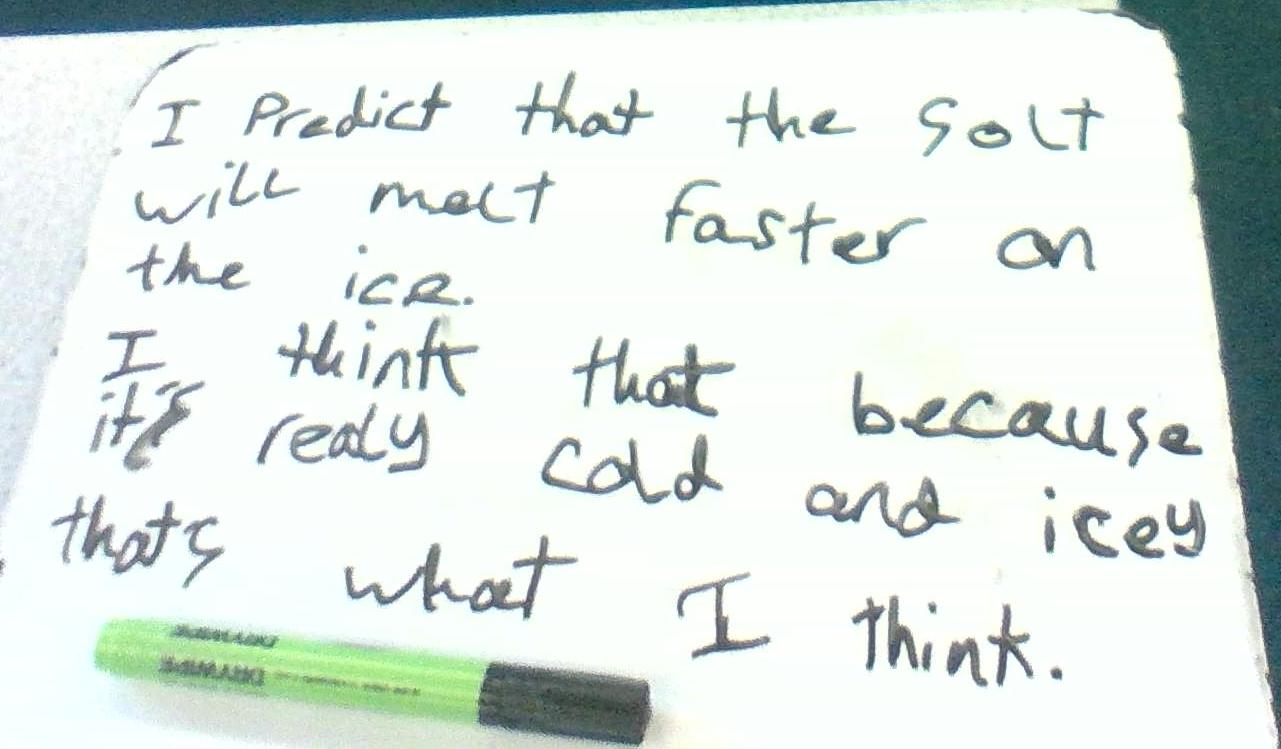 I Predict that the Solt
will melt faster on
the ice.
I think that because
it's realy cold and icey
thats what I think.
DRYWIPE